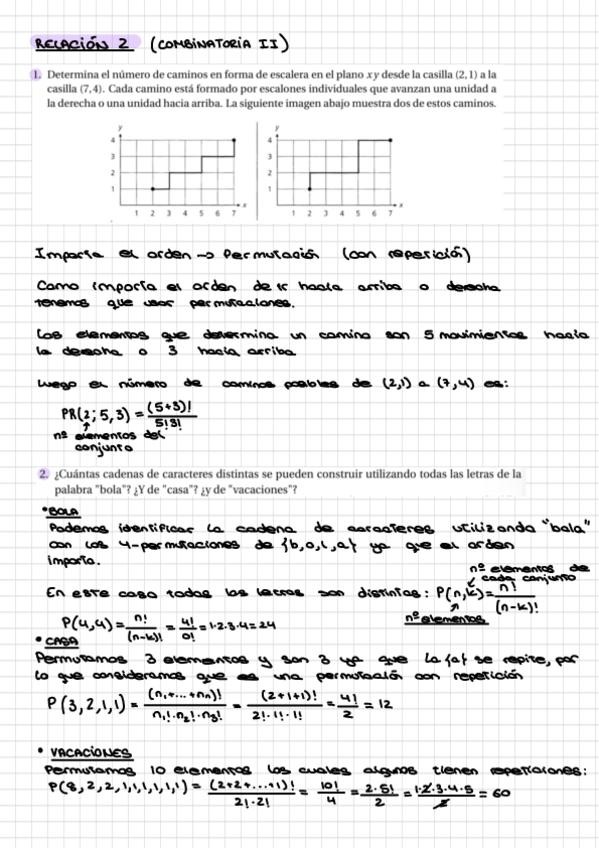 RELACIÓN 2 (COMBINATORIA II)
1. Determina el número de caminos en forma de escalera en el plano xy desde la casilla (2,1) a la
casilla (7,4). Cada camino está formado por escalones individuales que avanzan una unidad a
la derecha o una unidad hacia arriba. La siguiente imagen abajo muestra dos de estos caminos.
y
4
3
2
1
1 2 3 4 5 6 7 x
y
4
3
2
1
1 2 3 4 5 6 7 x
Importa el orden → Permutación (con repetición)
Como importa el orden de ir hacia arriba o derecha
tenemos que usar permutaciones.
Los elementos que determina un camino son 5 movimientos hacia
la derecha o 3 hacia arriba
Luego el número de caminos posibles de (2,1) a (7,4) es:
PR(2; 5, 3) = (5+3)! / 5!3!
nº elementos del
conjunto
2. ¿Cuántas cadenas de caracteres distintas se pueden construir utilizando todas las letras de la
palabra "bola"? ¿Y de "casa"? ¿y de "vacaciones"?
• BOLA
Podemos identificar la cadena de caracteres utilizando "bola"
con las 4-permutaciones de {b,o,l,a} ya que el orden
importa.
nº elementos de
cada conjunto
En este caso todas las letras son distintas: P(n,k) = n! / (n-k)!
nº elementos
P(4,4) = n! / (n-k)! = 4! / 0! = 1·2·3·4 = 24
• CASA
Permutamos 3 elementos y son 3 ya que la {a} se repite, por
lo que consideramos que es una permutación con repetición
P(3,2,1,1) = (n₁+...+nₙ)! / n₁!·n₂!·n₃! = (2+1+1)! / 2!·1!·1! = 4! / 2 = 12
• VACACIONES
Permutamos 10 elementos los cuales algunos tienen repeticiones:
P(8,2,2,1,1,1,1,1,1) = (2+2+...+1)! / 2!·2! = 10! / 4 = 2·5! / 2 = 1·2·3·4·5 / 2 = 60